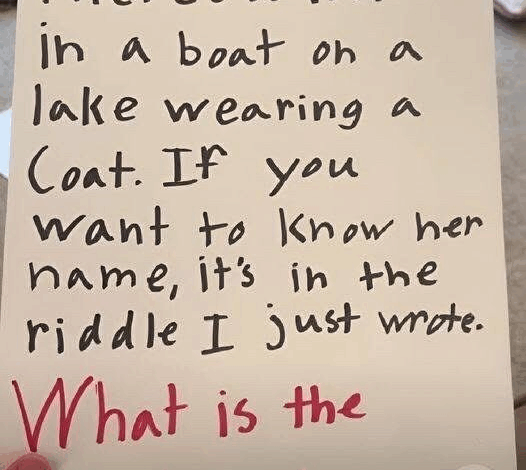 in a boat on a
lake wearing a
Coat. If you
want to know her
name, it's in the
riddle I just wrote.
What is the